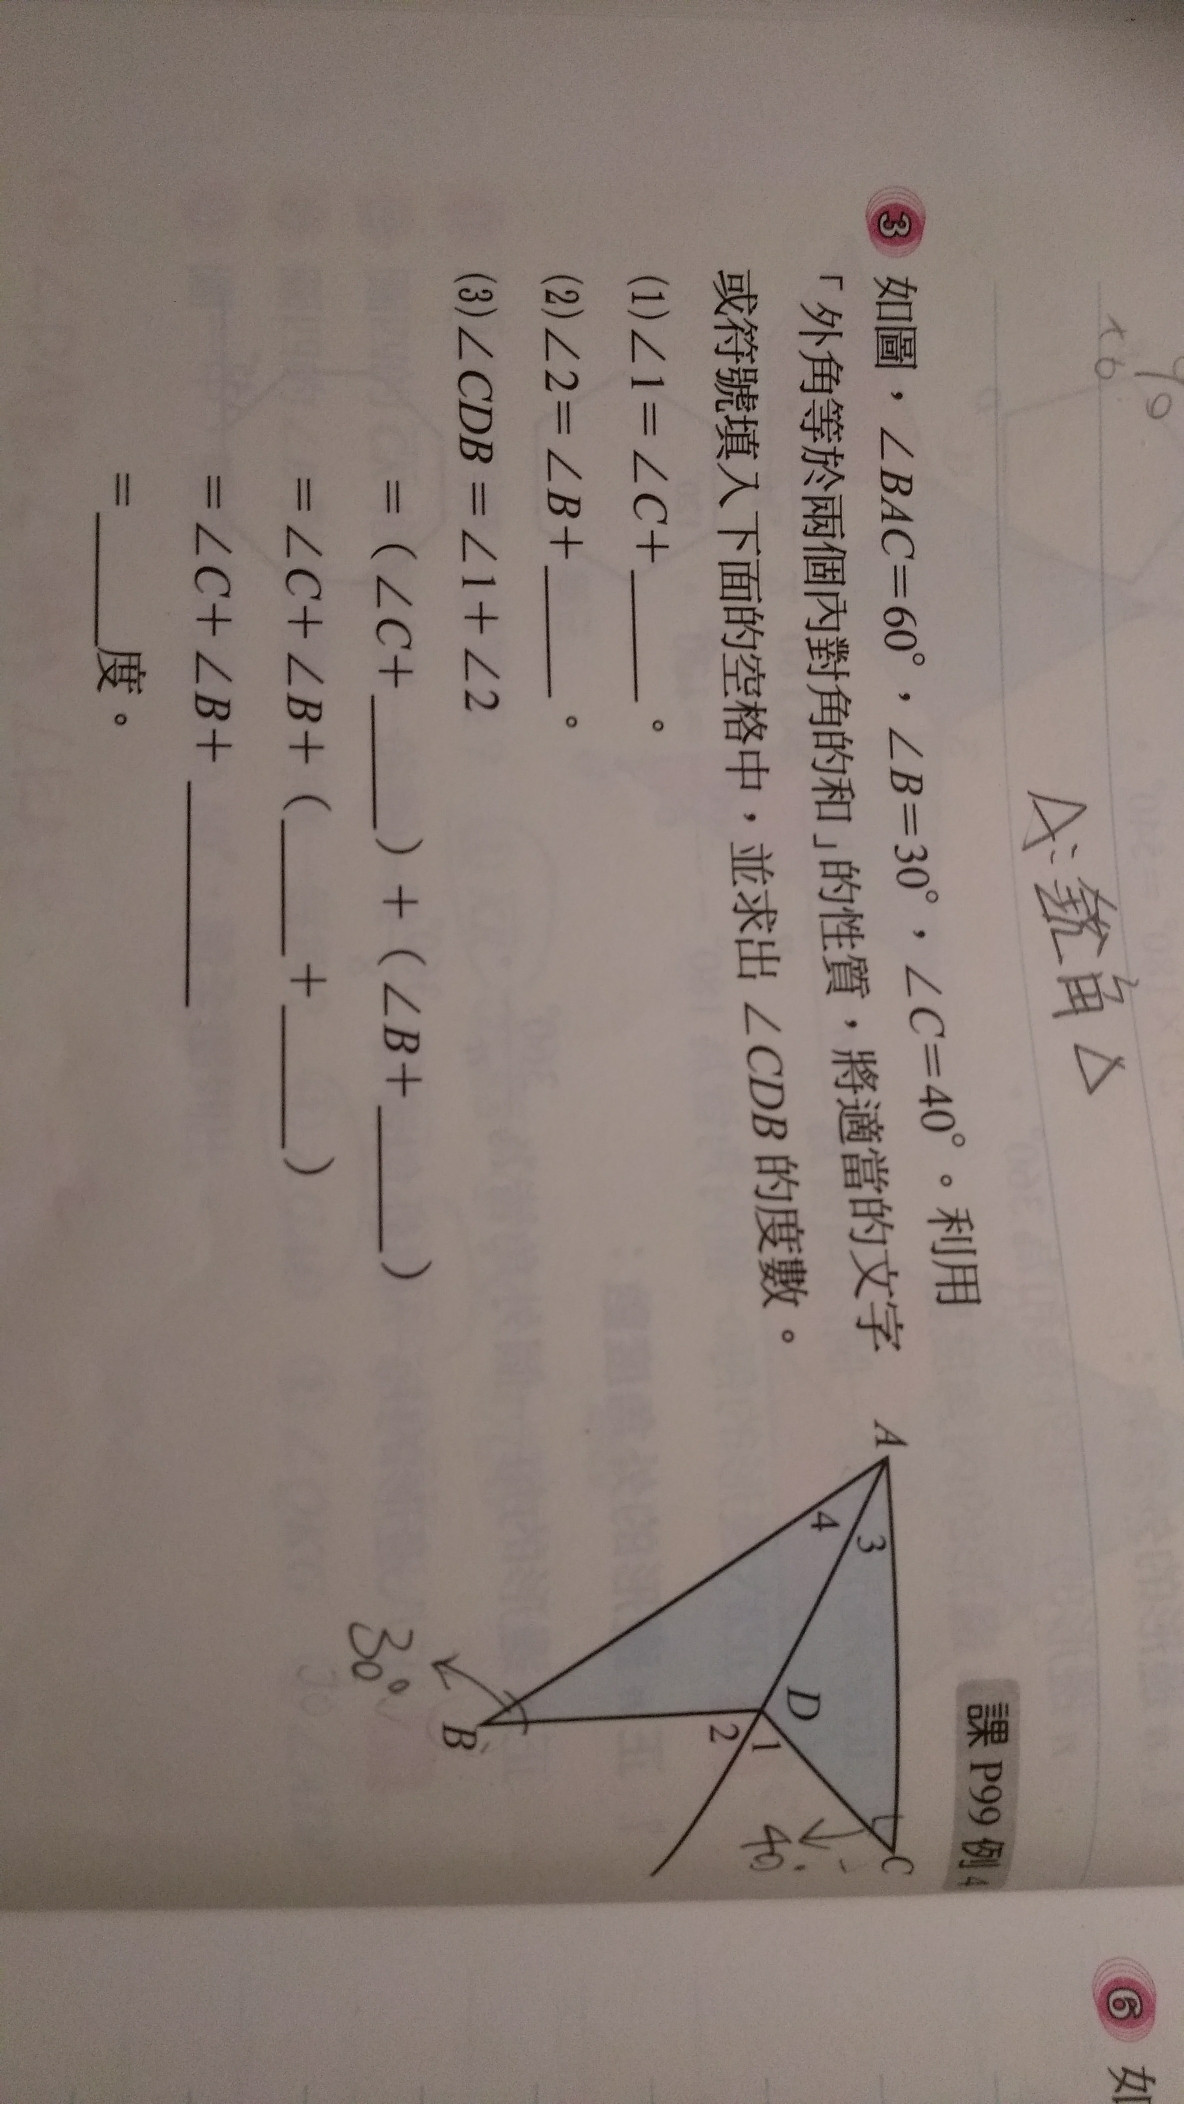 A:銳角△
課 P99 例 4
3 如圖，∠BAC=60°，∠B=30°，∠C=40°。利用
「外角等於兩個內對角的和」的性質，將適當的文字
或符號填入下面的空格中，並求出 ∠CDB 的度數。
(1)∠1=∠C+______。
(2)∠2=∠B+______。
(3)∠CDB=∠1+∠2
=(∠C+______)+(∠B+______)
=∠C+∠B+(______+______)
=∠C+∠B+__________
=______度。
A
3
4
D
1
2
C
40
B
30°
6 如